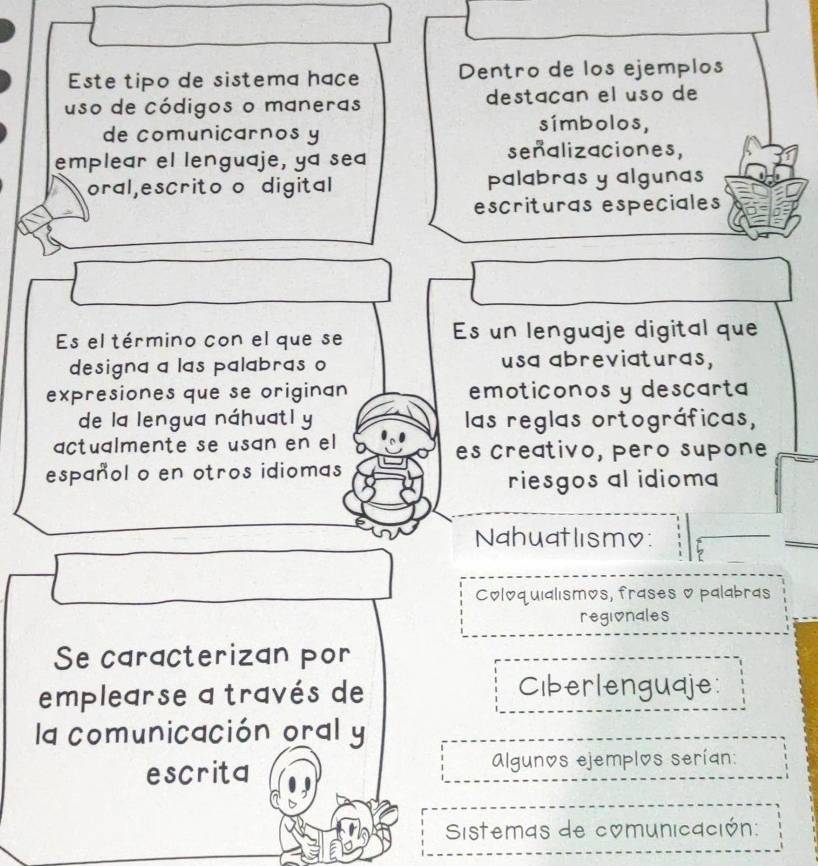 Este tipo de sistema hace
uso de códigos o maneras
de comunicarnos y
emplear el lenguaje, ya sea
oral,escrito o digital
Dentro de los ejemplos
destacan el uso de
símbolos,
señalizaciones,
palabras y algunas
escrituras especiales
Es el término con el que se
designa a las palabras o
expresiones que se originan
de la lengua náhuatl y
actualmente se usan en el
español o en otros idiomas
Es un lenguaje digital que
usa abreviaturas,
emoticonos y descarta
las reglas ortográficas,
es creativo, pero supone
riesgos al idioma
Se caracterizan por
emplearse a través de
la comunicación oral y
escrita
Nahuatlismo:
Coloquialismos, frases o palabras
regionales
Ciberlenguaje:
algunos ejemplos serían:
Sistemas de comunicación: